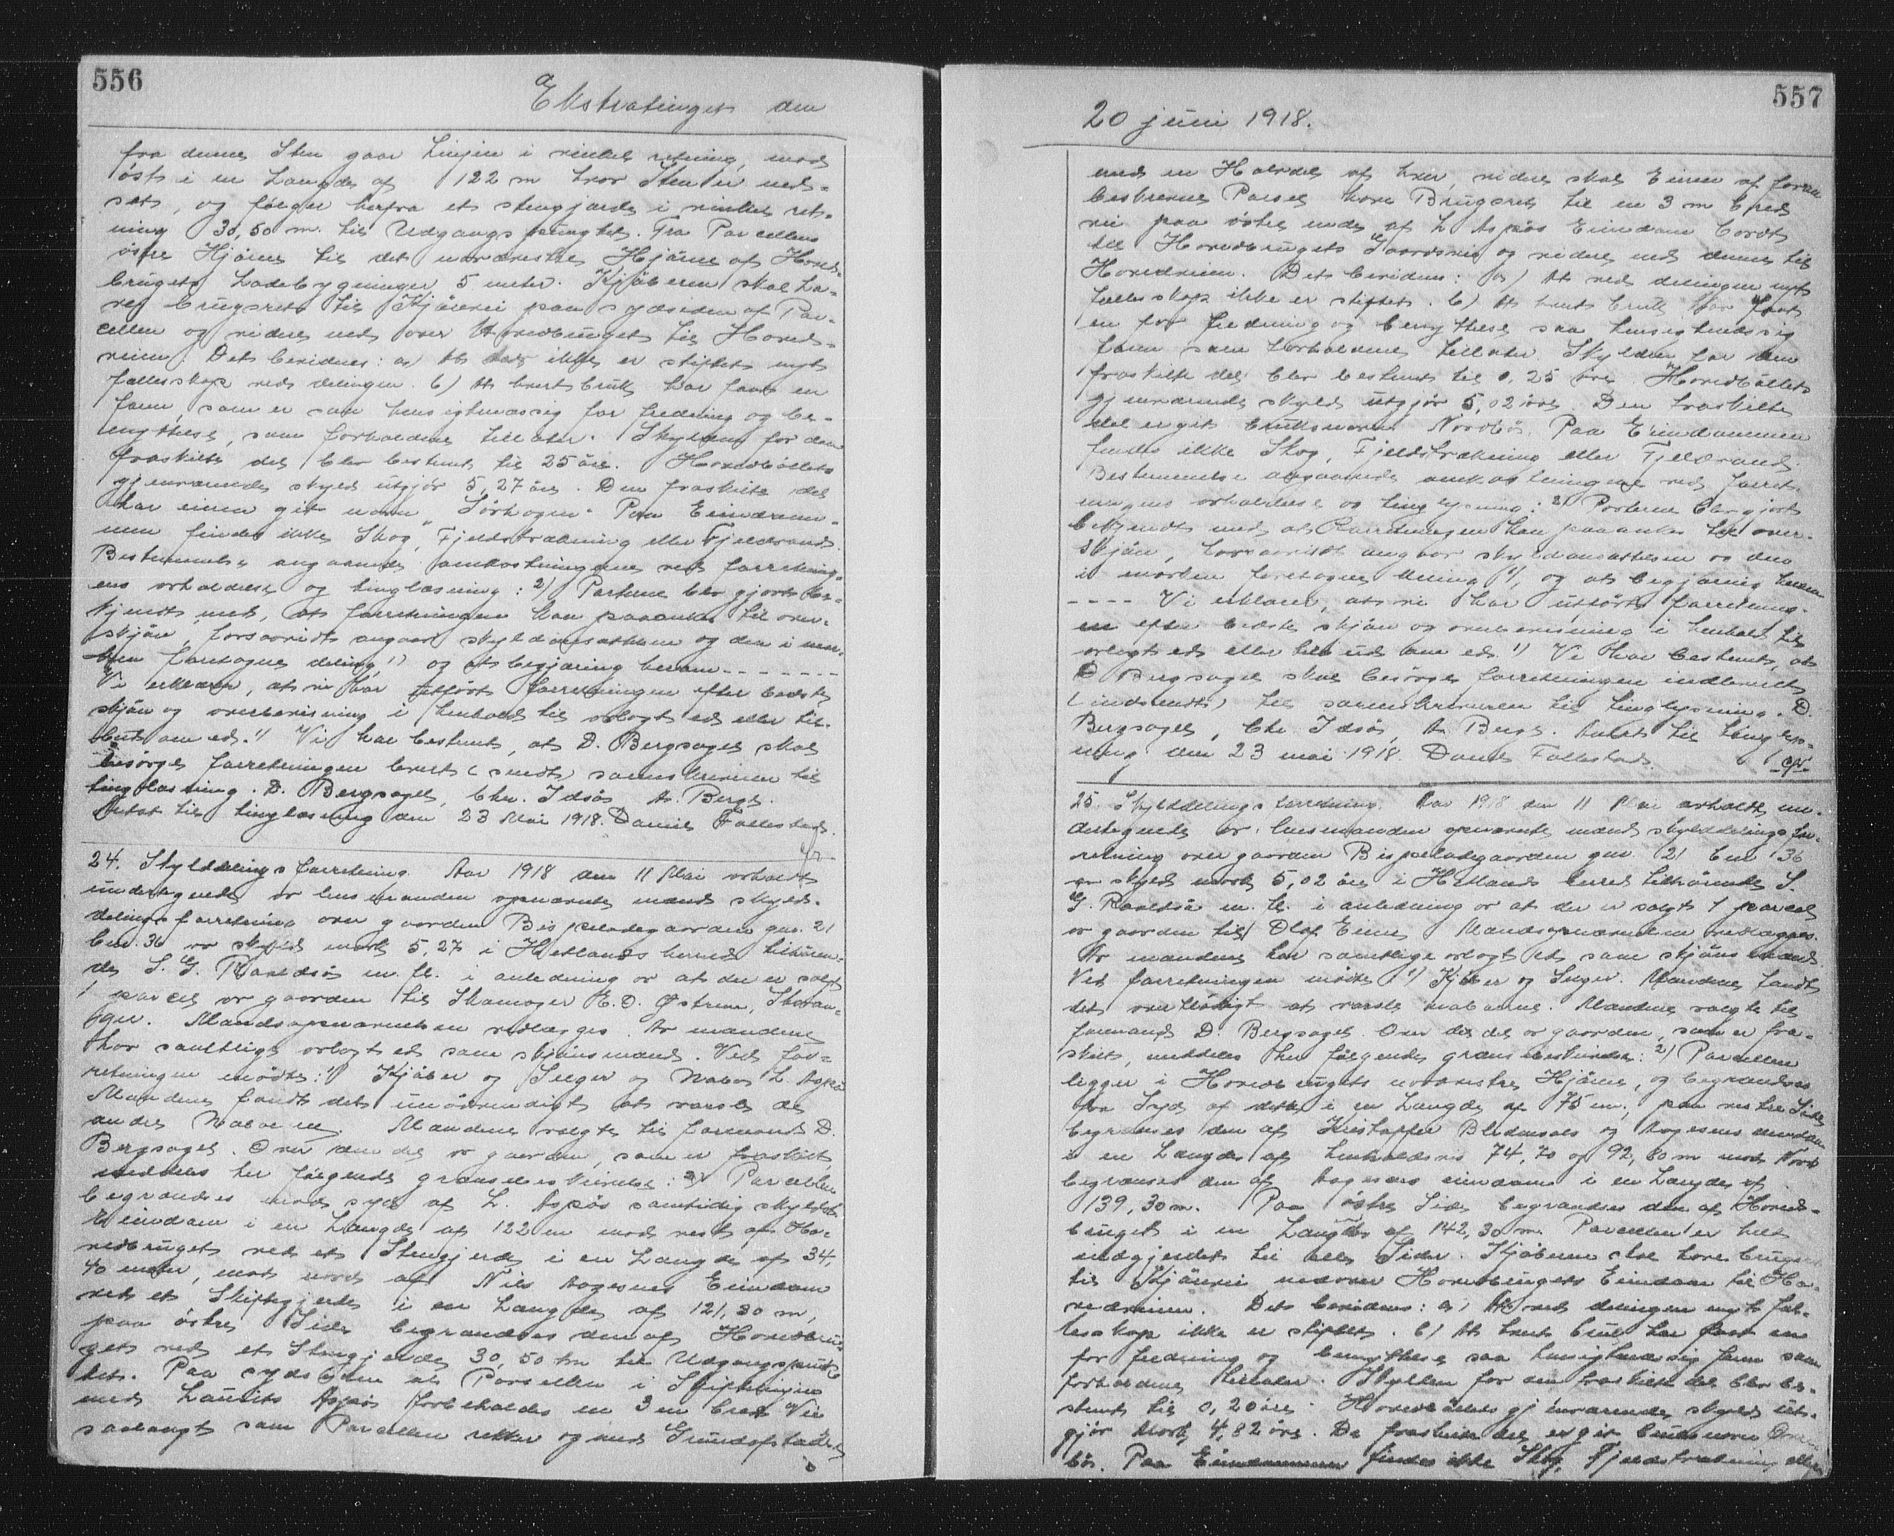 556
Ekstratinget den
fra denne Sten gaar Linjen i vinkel retning, mod
øst i en Længde af 122 m hvor Sten er ned-
sat, og følger herfra et stengjærde i vinkel ret-
ning 30,50 m. til Udgangspunktet. Fra Parcellens
østre Hjørne til det nærmeste Hjørne af Hoved-
brugets Ladebygninger 5 meter. Kjøberen skal ha-
ve brugsret til Kjørevei paa sydsiden af Par-
cellen og videre ned over Hovedbruget til Hoved-
veien. Det bevidnes: a) At der ikke er stiftet nyt
fællesskap ved delingen. b) At hvert bruk har faat en
form, som er saa hensigtmæssig for fredning og be-
nyttelse, som forholdene tillater. Skylden for den
fraskilte del blev bestemt til 25 øre. Hovedbøllets
gjenværende skyld utgjør 5,27 øre. Den fraskilte del
har eieren git navn „Sørhagen“ Paa Eiendom-
men findes ikke Skog, Fjeldstrækning eller Fjeldvand.
Bestemmelse angaaende omkostningerne ved forretning-
ens avholdelse og tinglæsning: 2) Parterne blev gjort be-
kjendt med, at forretningen kan paaankes til over-
skjøn, forsaavidt angaar skyldansættelsen og den i mar-
ken foretagne deling 1) og at begjæring herom - - - - - - -
Vi erklærer, at vi har utført forretningen efter bedste
skjøn og overbevisning i henhold til avlagt ed eller til-
bud om ed. 1) Vi har bestemt, at D. Bergsagel skal
besørge forretningen levert (sendt) sorenskriveren til
tinglæsning. D. Bergsagel, Chr. Idsøe A. Berge.
Antat til tinglæsning den 23 Mai 1918. Daniel Fallestad.
24. Skylddelingsforretning. Aar 1918 den 11 Mai avholdt
undertegnede av lensmanden opnævnte mænd skyld-
delingsforretning over gaarden Bispeladegaarden gnr. 21
bnr. 36 av skyld mark 5,27 i Hetlands herred tilhøren-
de S. G. Ravldsø m. fl. i anledning av at der er solgt
1 parcel av gaarden til Skomager E. O. Østrem, Stavan-
ger. Mandsopnævnelsen vedlægges. Av mændene
har samtlige avlagt ed som skjønsmænd. Ved for-
retningen mødte: 1) Kjøber og Selger og Nabo L. Aspø
Mændene fandt det unødvendigt at varsle de
andre Naboerne. Mændene valgte til formand D.
Bergsagel. Over den del av gaarden, som er fraskilt,
meddeles her følgende grænsebeskrivelse: 2) Parcellen
begrændses mod syd af L. Aspøs samtidig skyldsatte
Eiendom i en Længde af 122 m mod vest af Ho-
vedbruget ved et Stengjerde i en Længde af 34,
40 meter, mot nord af Nils Aagesens Eiendom
ved et Skiftegjerde i en Længde af 121,30 m,
paa østre Side begrændses den af Hovedbru-
get ved et Stengjerde 30,50 m til Udgangspunk-
tet. Paa sydsiden af Parsellen i Skiftelinjen
med Lauritz Aspøs forbeholdes en 3 m bred Vei
saalangt som Parcellen rekker og med Grundafstaaelse
557
20 juni 1918.
med en Halvdel af hver, videre skal Eieren af foran
beskrevne Parsel have Brugsret til en 3 m bred
vei paa østre ende af L. Aspøs Eiendom bortt
til Hovedbrugets Gaardsvei og videre ned denne til
Hovedveien. Det bevidnes: a) At ved delingen nyt
fællesskap ikke er stiftet. b) At hvert bruk har faat
en for fredning og benyttelse saa hensigtmæssig
form som forholdene tillater. Skylden for den
fraskilte del blev bestemt til 0,25 øre. Hovedbøllets
gjenværende skyld utgjør 5,02 øre. Den fraskilte
del er git bruksnavn Nordbø. Paa Eiendommen
findes ikke Skog, Fjeldstrækning eller Fjeldvand.
Bestemmelse angaaende omkostningene ved forret-
ningens avholdelse og tinglysning: 2) Parterne blev gjort
bekjendt med, at forretningen kan paaankes til over-
skjøn, forsaavidt angaar skyldansættelsen og den
i marken foretagne deling 1), og at begjæring herom
- - - - Vi erklærer, at vi har utført forretning-
en efter bedste skjøn og overbevisning i henhold til
avlagt ed eller tilbud om ed. 1) Vi har bestemt, at
D Bergsagel skal besørge forretningen indlevert
(indsendt) til sorenskriveren til tinglysning. D.
Bergsagel, Chr. Idsøe, A. Berge. Antat til tinglys-
ning den 23 mai 1918. Daniel Fallestad.
25. Skylddelingsforretning. Aar 1918 den 11 Mai avholdt un-
dertegnede av lensmanden opnævnte mænd skylddelingsfor-
retning over gaarden Bispeladegaarden gnr. 21 bnr 36
av skyld mark 5,02 øre i Hetlands herred tilhørende S.
G. Ravldsø m. fl. i anledning av at der er solgt 1 parcel
av gaarden til Olaf Eiene Mandsopnævnelsen vedlægges.
Av mændene har samtlige avlagt ed som skjønsmænd.
Ved forretningen mødte 1) Kjøber og Selger. Mændene fandt
det overflødigt at varsle naboerne. Mændene valgte til
formand D. Bergsagel Over den del av gaarden, som er fra-
skilt, meddeles her følgende grænsebeskrivelse: 2) Parcellen
ligger i Hovedbrugets nordvestre Hjørne, og begrændses
fra Syd af dette i en Længde af 75 m; paa vestre Side
begrænses den af Kristoffer og Aagesens eiendom
i en Længde af henholdsvis 74,70 og 92,80 m mod Nord
begrænses den af Aagesens eiendom i en Længde af
139,30 m. Paa østre Side begrændses den af Hoved-
bruget i en Længde af 142,30 m. Parcellen er helt
indgjerdet til alle Sider. Kjøberen skal have brugsret
til Kjørevei nedover Hovedbrugets Eiendom til Ho-
vedveien. Det bevidnes: a) At ved delingen nyt fæl-
lesskap ikke er stiftet. b) At hvert bruk har faat en
for fredning og benyttelse saa hensigtmæssig form som
forholdene tillater. Skylden for den fraskilte del blev be-
stemt til 0,20 øre. Hovedbøllets gjenværende skyld ut-
gjør Mark 4,82 øre. Den fraskilte del er git bruksnavn
bø. Paa Eiendommen findes ikke Skog, Fjeldstrækning eller